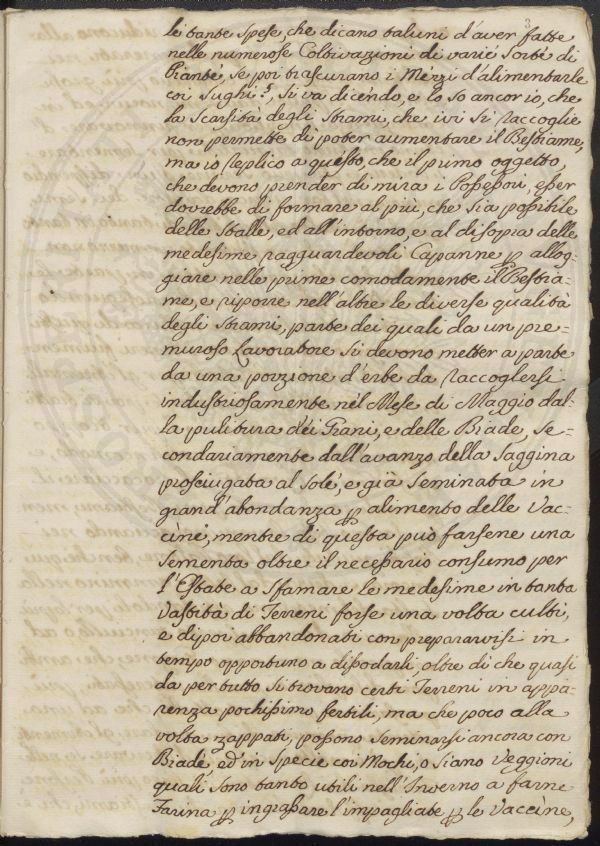 3
le tante Spese, che dicano taluni d'aver fatte
nelle numerose Coltivazioni di varie Sorte di
Piante, se poi trascurano i Mezzi d'alimentarle
coi Sughi?, Si va dicendo, e lo so ancor io, che
la Scarsità degli Strami, che ivi Si raccoglie
non permette di poter aumentare il Bestiame,
ma io replico a questo, che il primo oggetto,
che devono prender di mira i Possessori, esser
dovrebbe di formare al più, che sia possibile
delle Stalle, ed all'intorno, e al disopra delle
medesime ragguardevoli Capanne p allog=
giare nelle prime comodamente il Bestia=
me, e riporre nell'altre le diverse qualità
degli Strami, parte dei quali da un pre=
muroso Lavoratore Si devono metter a parte
da una porzione d'erbe da raccoglersi
industriosamente nel Mese di Maggio dal=
la pulitura dei Grani, e delle Biade, Se=
condariamente dall'avanzo della Saggina
prosciugata al Sole, e già Seminata in
grand'abondanza p alimento delle Vac=
cine, mentre di questa può farsene una
Sementa oltre il necessario consumo per
l'Estate a Sfamare le medesime in tanta
Vastità di Terreni forse una volta culti,
e dipoi abbandonati con prepararvisi in
tempo opportuno a dissodarli, oltre di che quasi
da per tutto Si trovano certi Terreni in appa=
renza pochissimo fertili, ma che poco alla
volta zappati, possono Seminarsi ancora con
Biade, ed in Specie coi Mochi, o siano Veggioni
quali Sono tanto utili nell'Inverno a farne
Farina p ingrassare l'impagliate p le Vaccine,